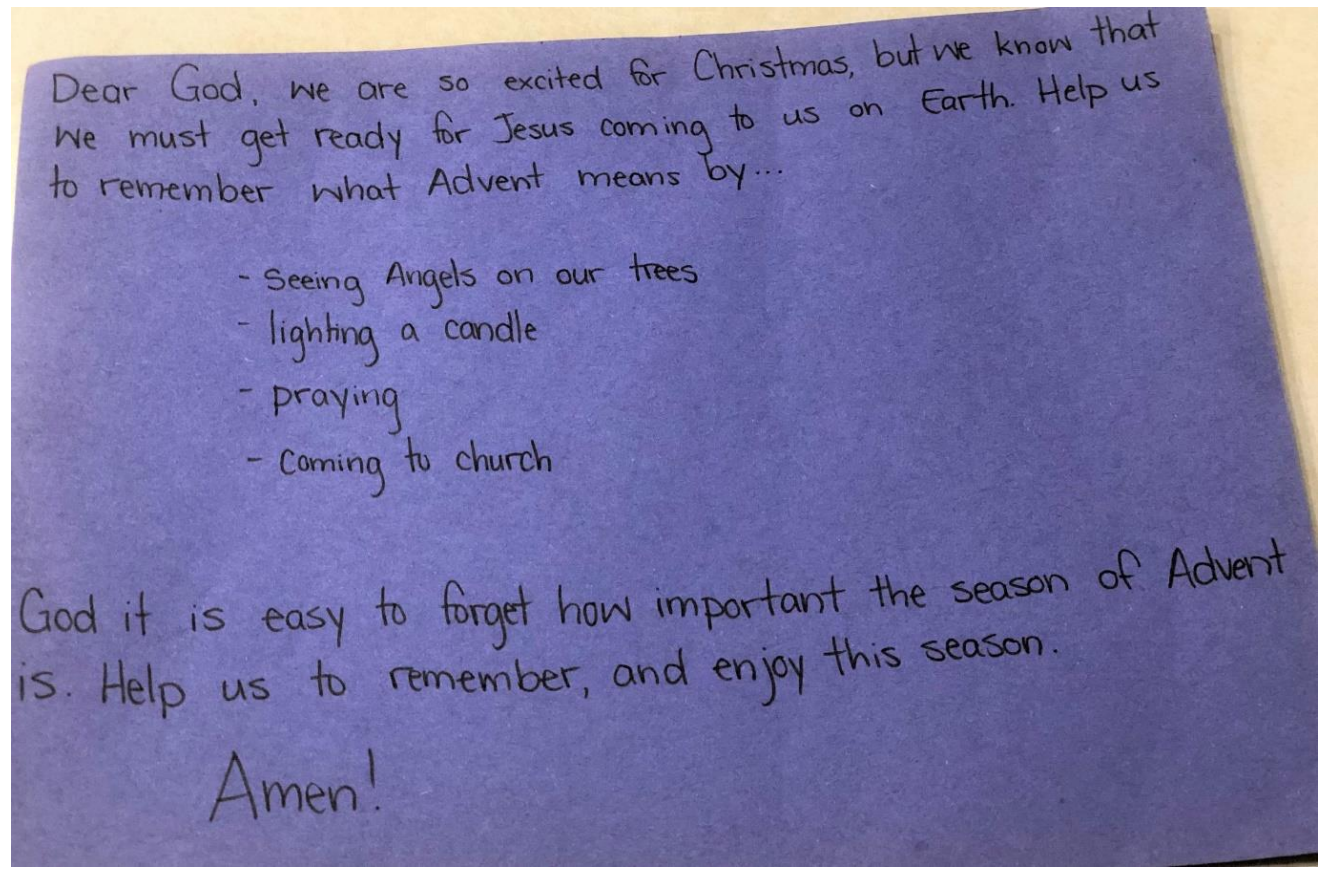 Dear God, we are so excited for Christmas, but we know that
we must get ready for Jesus coming to us on Earth. Help us
to remember what Advent means by...
- Seeing Angels on our trees
- lighting a candle
- praying
- Coming to church
God it is easy to forget how important the season of Advent
is. Help us to remember, and enjoy this season.
Amen!